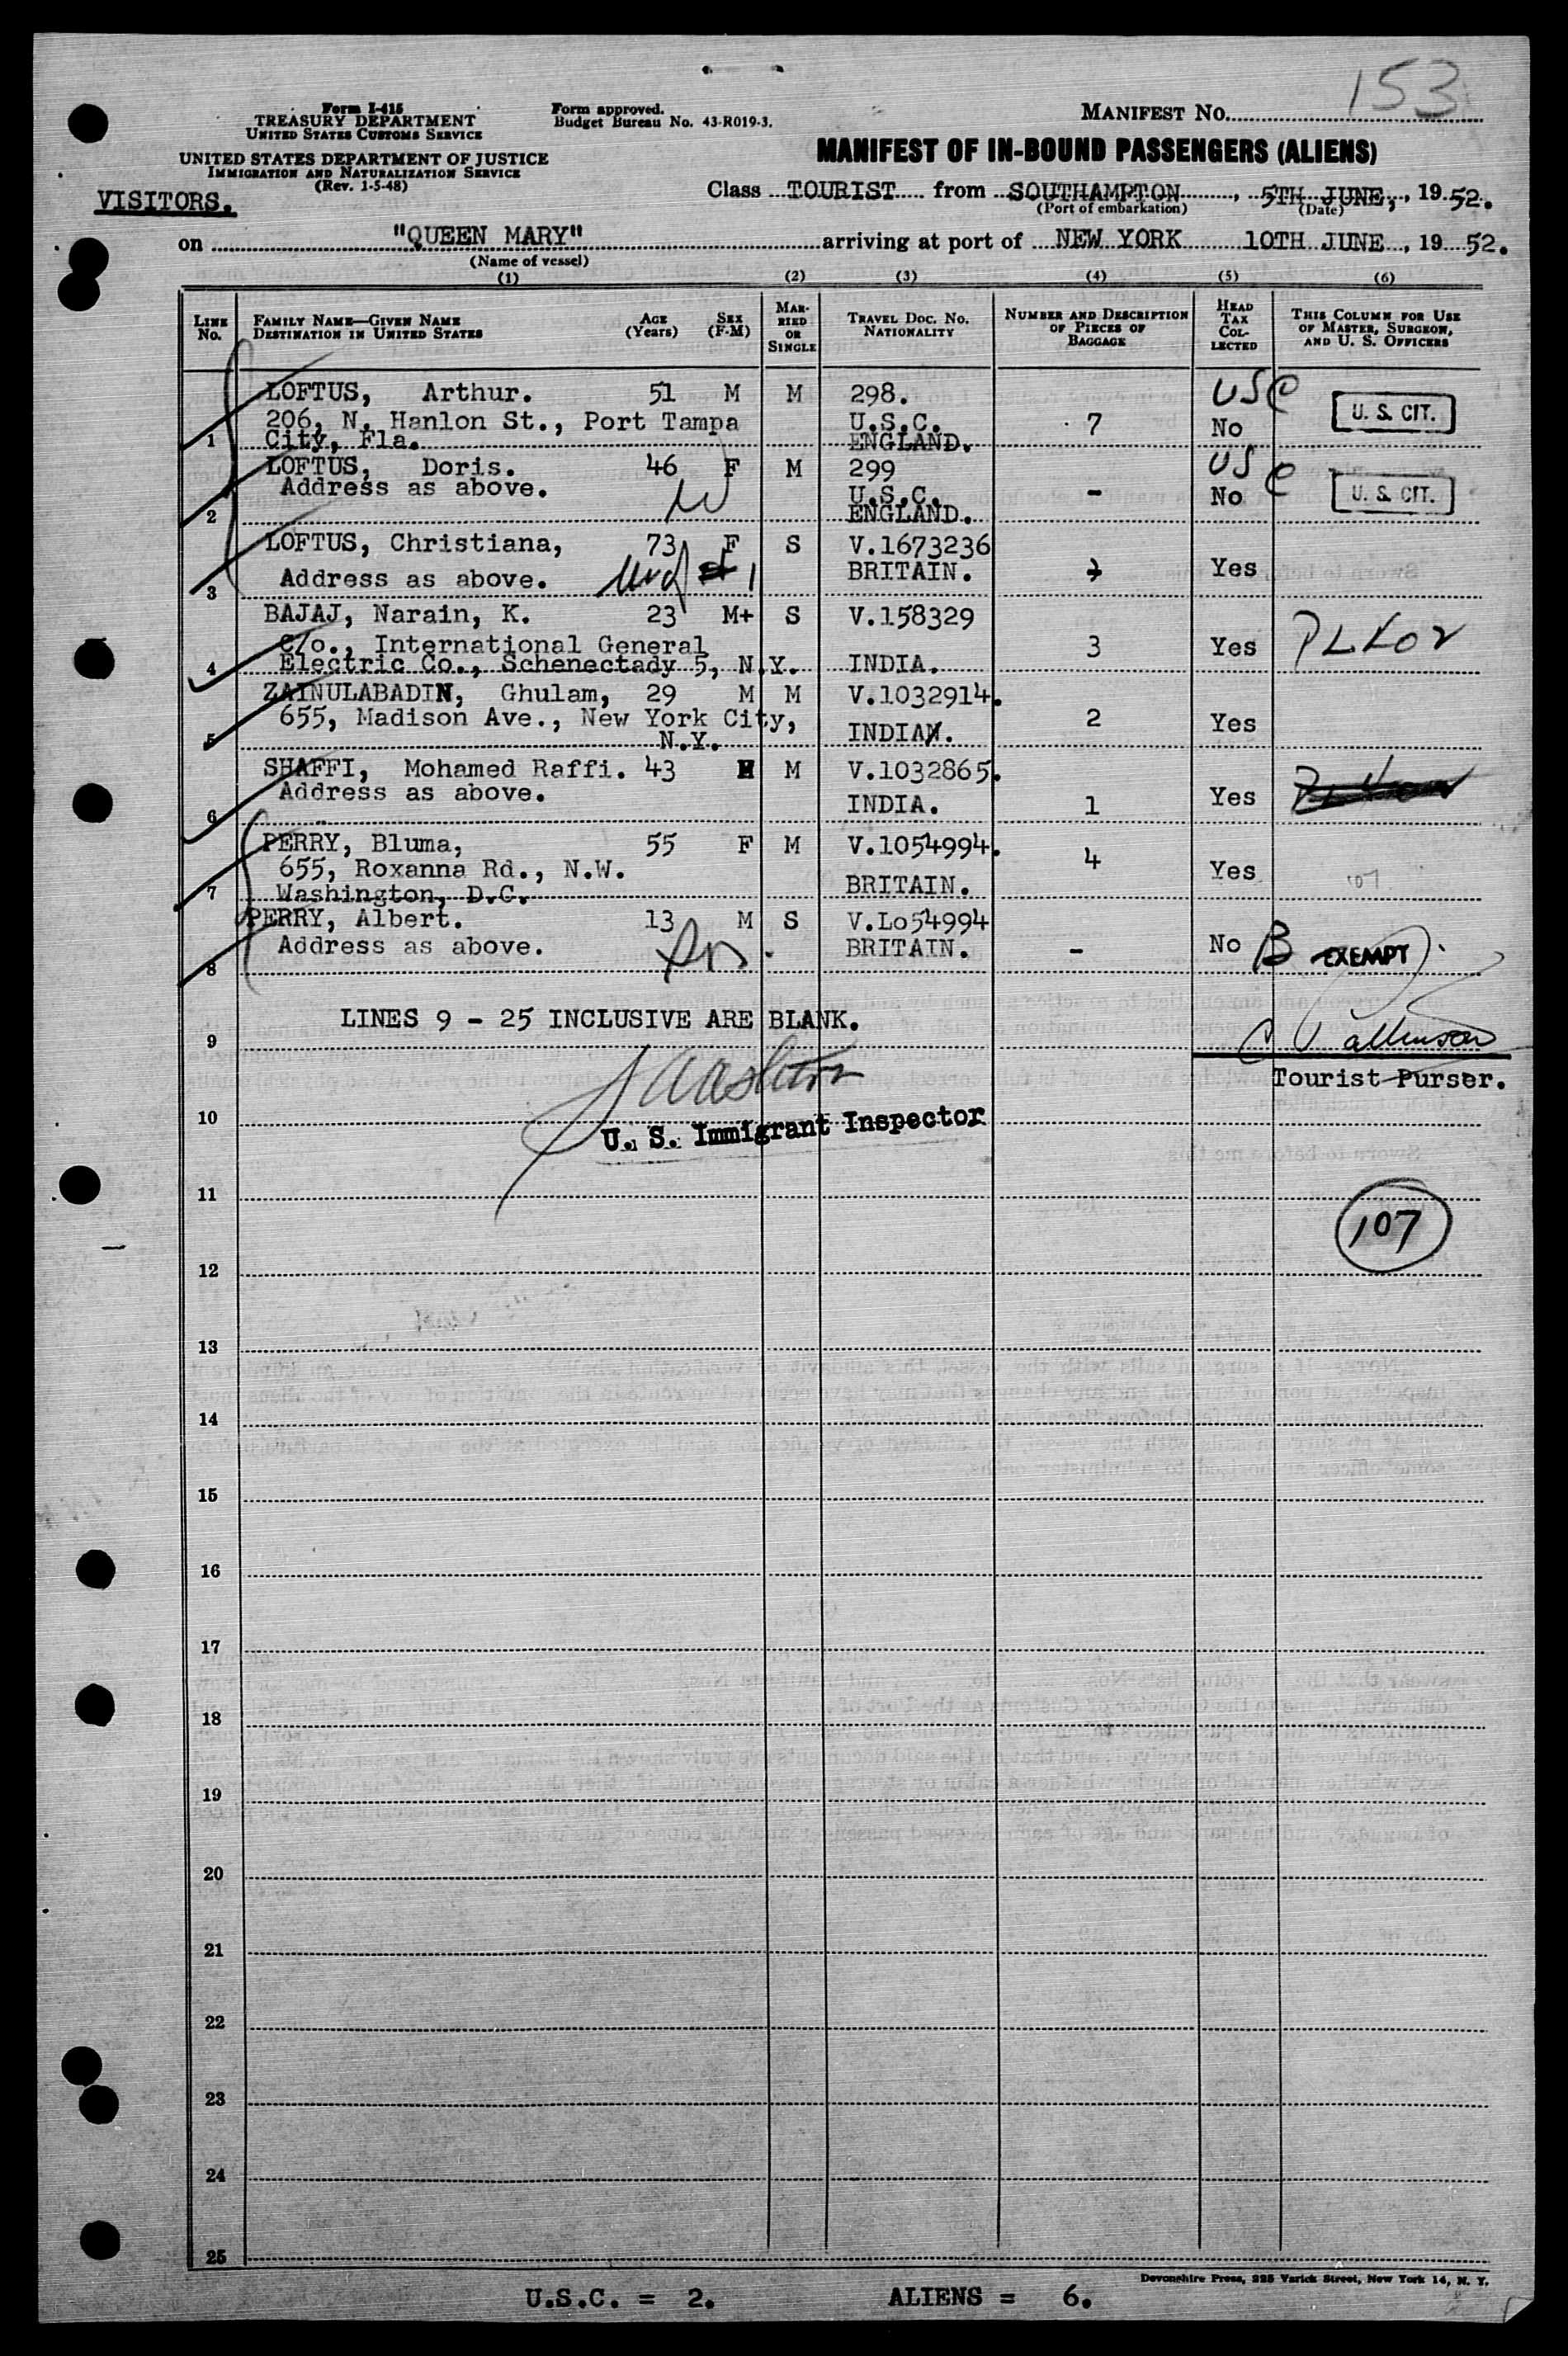 153
Form I-415
TREASURY DEPARTMENT
UNITED STATES CUSTOMS SERVICE
Form approved.
Budget Bureau No. 43-R019-3.
MANIFEST NO.
UNITED STATES DEPARTMENT OF JUSTICE
IMMIGRATION AND NATURALIZATION SERVICE
(Rev. 1-5-48)
MANIFEST OF IN-BOUND PASSENGERS (ALIENS)
VISITORS.
Class TOURIST from SOUTHAMPTON, 5TH JUNE, 1952.
(Port of embarkation) (Date)
on "QUEEN MARY" arriving at port of NEW YORK 10TH JUNE, 1952.
(Name of vessel)
(1) (2) (3) (4) (5) (6)
LINE No. FAMILY NAME—GIVEN NAME DESTINATION IN UNITED STATES AGE (Years) SEX (F-M) MARRIED OR SINGLE TRAVEL DOC. NO. NATIONALITY NUMBER AND DESCRIPTION OF PIECES OF BAGGAGE HEAD TAX COLLECTED THIS COLUMN FOR USE OF MASTER, SURGEON, AND U. S. OFFICERS
LOFTUS, Arthur. 51 M M 298. USC
206, N. Hanlon St., Port Tampa U.S.C. 7 No U. S. CIT.
1 City, Fla. ENGLAND.
LOFTUS, Doris. 46 F M 299 USC
Address as above. U.S.C. - No U. S. CIT.
2 ENGLAND.
LOFTUS, Christiana, 73 F S V.1673236
3 Address as above. BRITAIN. Yes
BAJAJ, Narain, K. 23 M+ S V.158329
C/o., International General 3 Yes
4 Electric Co., Schenectady 5, N.Y. INDIA.
ZAINULABADIN, Ghulam, 29 M M V.1032914.
655, Madison Ave., New York City, 2 Yes
5 N.Y. INDIA.
SHAFFI, Mohamed Raffi. 43 M M V.1032865.
6 Address as above. INDIA. 1 Yes
PERRY, Bluma, 55 F M V.1054994.
655, Roxanna Rd., N.W. 4 Yes
7 Washington, D.C. BRITAIN. 107
PERRY, Albert. 13 M S V.Lo54994
8 Address as above. BRITAIN. - No B EXEMPT
LINES 9 - 25 INCLUSIVE ARE BLANK.
9
Tourist Purser.
10 U. S. Immigrant Inspector
11
107
12
13
14
15
16
17
18
19
20
21
22
23
24
25
Devonshire Press, 225 Varick Street, New York 14, N. Y.
U.S.C. = 2. ALIENS = 6.